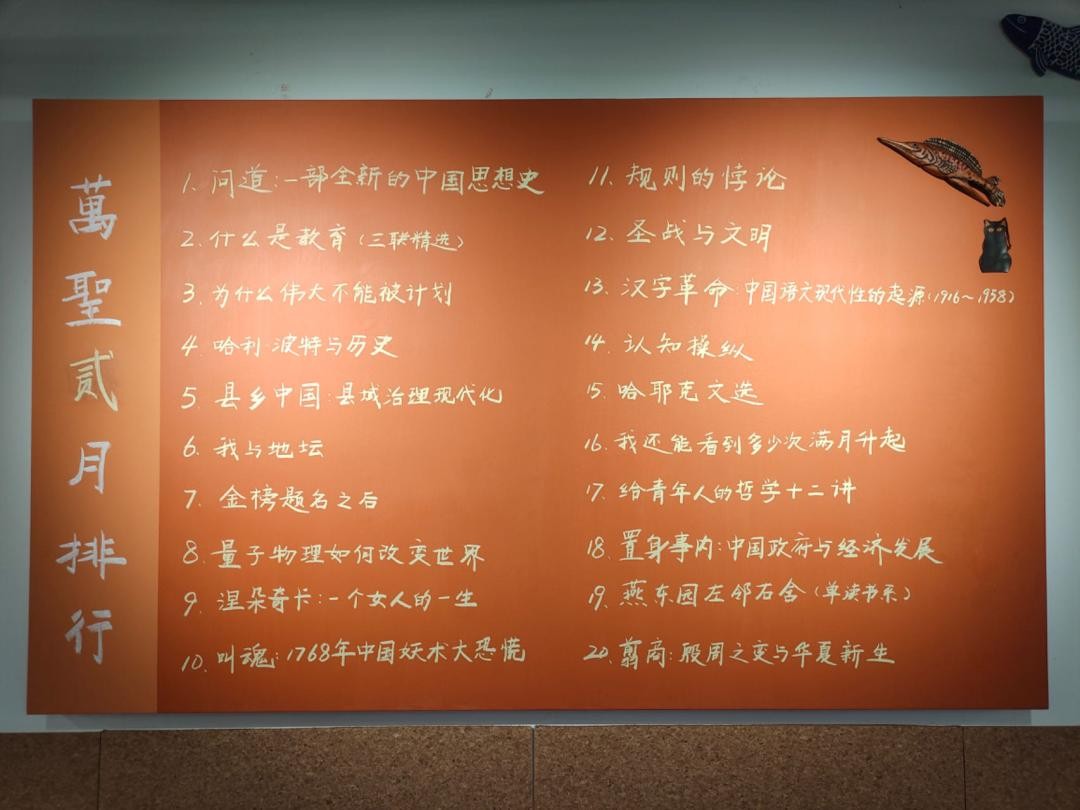 萬聖貳月排行
1. 问道:一部全新的中国思想史
2. 什么是教育(三联精选)
3. 为什么伟大不能被计划
4. 哈利·波特与历史
5. 县乡中国:县域治理现代化
6. 我与地坛
7. 金榜题名之后
8. 量子物理如何改变世界
9. 涅朵奇卡:一个女人的一生
10. 叫魂:1768年中国妖术大恐慌
11. 规则的悖论
12. 圣战与文明
13. 汉字革命:中国语文现代性的起源(1916~1958)
14. 认知操纵
15. 哈耶克文选
16. 我还能看到多少次满月升起
17. 给青年人的哲学十二讲
18. 置身事内:中国政府与经济发展
19. 燕东园左邻右舍(单读书系)
20. 翦商:殷周之变与华夏新生